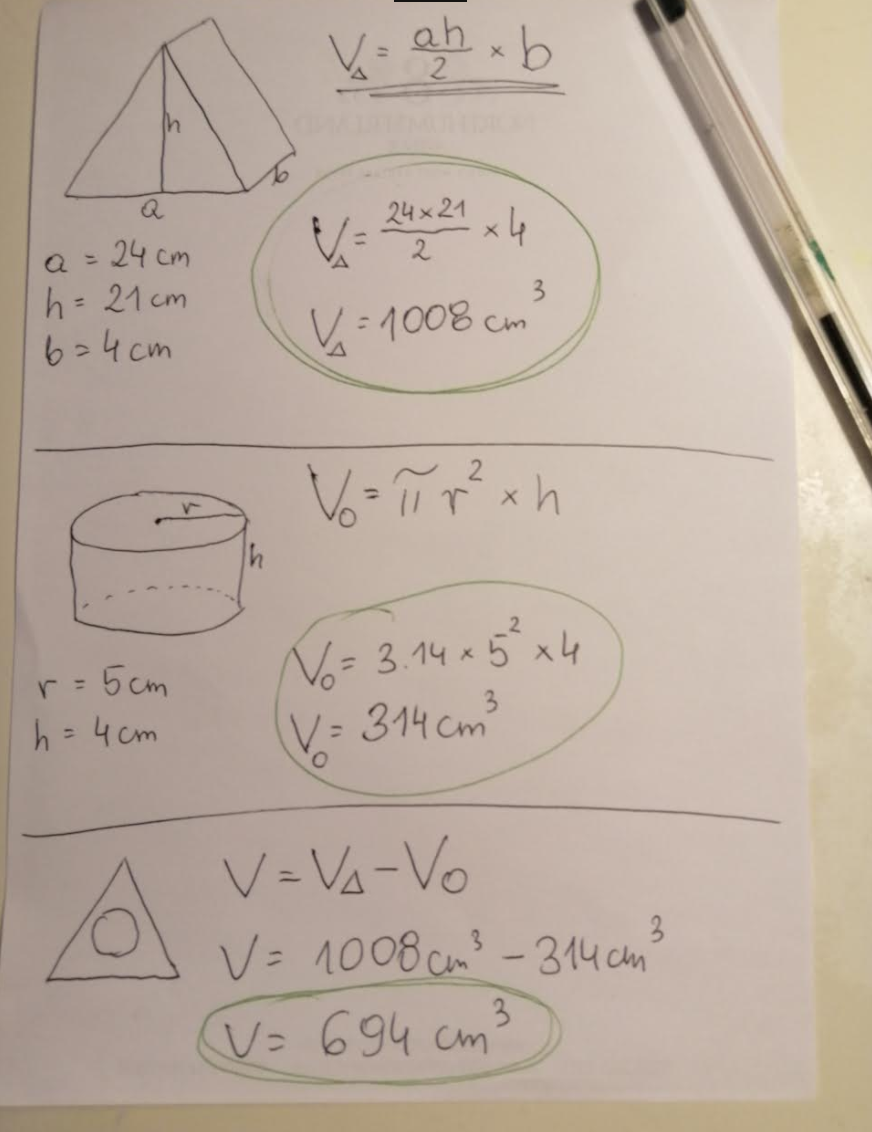 V△ = ah/2 × b
h
b
a
a = 24 cm
h = 21 cm
b = 4 cm
V△ = 24×21/2 × 4
V△ = 1008 cm³
r
h
V○ = π r² × h
r = 5 cm
h = 4 cm
V○ = 3.14 × 5² × 4
V○ = 314 cm³
V = V△ – V○
V = 1008 cm³ – 314 cm³
V = 694 cm³